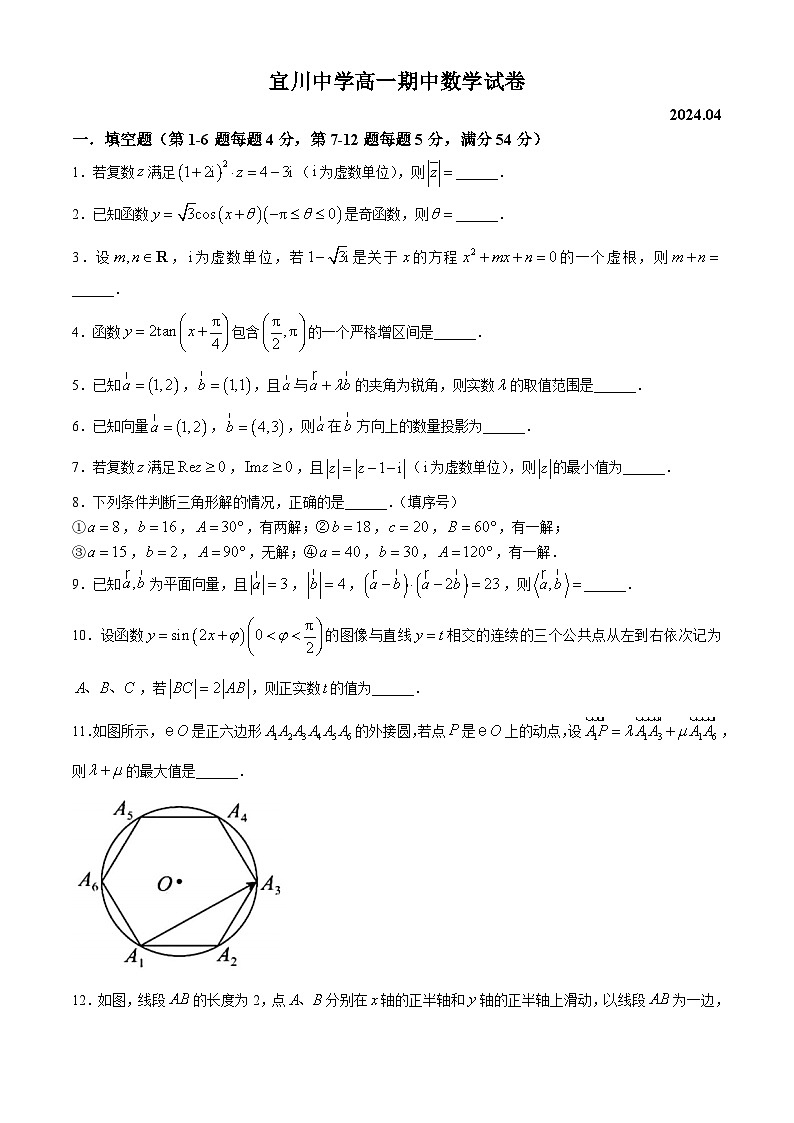 宜川中学高一期中数学试卷
2024.04
一．填空题（第1-6题每题4分，第7-12题每题5分，满分54分）
1.若复数z满足(1+2i)²·z=4−3i（i为虚数单位），则|z̅|=______.
2.已知函数y=√3cos(x+θ)(−π≤θ≤0)是奇函数，则θ=______.
3.设m,n∈R，i为虚数单位，若1−√3i是关于x的方程x²+mx+n=0的一个虚根，则m+n=
______.
4.函数y=2tan(x+π/4)包含(π/2,π)的一个严格增区间是______.
5.已知a=(1,2)，b=(1,1)，且a与a+λb的夹角为锐角，则实数λ的取值范围是______.
6.已知向量a=(1,2)，b=(4,3)，则a在b方向上的数量投影为______.
7.若复数z满足Rez≥0，Imz≥0，且|z|=|z−1−i|（i为虚数单位），则|z|的最小值为______.
8.下列条件判断三角形解的情况，正确的是______.（填序号）
①a=8，b=16，A=30°，有两解；②b=18，c=20，B=60°，有一解；
③a=15，b=2，A=90°，无解；④a=40，b=30，A=120°，有一解.
9.已知a,b为平面向量，且|a|=3，|b|=4，(a−b)·(a−2b)=23，则⟨a,b⟩=______.
10.设函数y=sin(2x+φ)(0<φ<π/2)的图像与直线y=t相交的连续的三个公共点从左到右依次记为
A、B、C，若|BC|=2|AB|，则正实数t的值为______.
11.如图所示，eO是正六边形A₁A₂A₃A₄A₅A₆的外接圆,若点P是eO上的动点,设A₁P=λA₁A₃+μA₁A₆，
则λ+μ的最大值是______.
A₅ A₄
A₆ O A₃
A₁ A₂
12.如图，线段AB的长度为2，点A、B分别在x轴的正半轴和y轴的正半轴上滑动，以线段AB为一边，